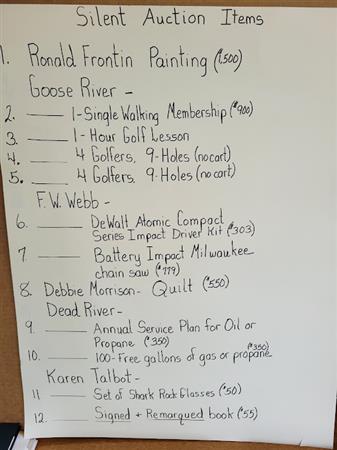 Silent Auction Items
1. Ronald Frontin Painting ($1,500)
Goose River -
2. ____ 1-Single Walking Membership ($900)
3. ____ 1-Hour Golf Lesson
4. ____ 4 Golfers, 9-Holes (no cart)
5. ____ 4 Golfers, 9-Holes (no cart)
F.W. Webb -
6. ____ DeWalt Atomic Compact
Series Impact Driver Kit ($303)
7 ____ Battery Impact Milwaukee
chain saw ($779)
8. Debbie Morrison- Quilt ($550)
Dead River -
9. ____ Annual Service Plan for Oil or
Propane ($350)
10. ____ 100-Free gallons of gas or propane ($350)
Karen Talbot -
11 ____ Set of Shark Rock Glasses ($50)
12. ____ Signed + Remarqued book ($55)